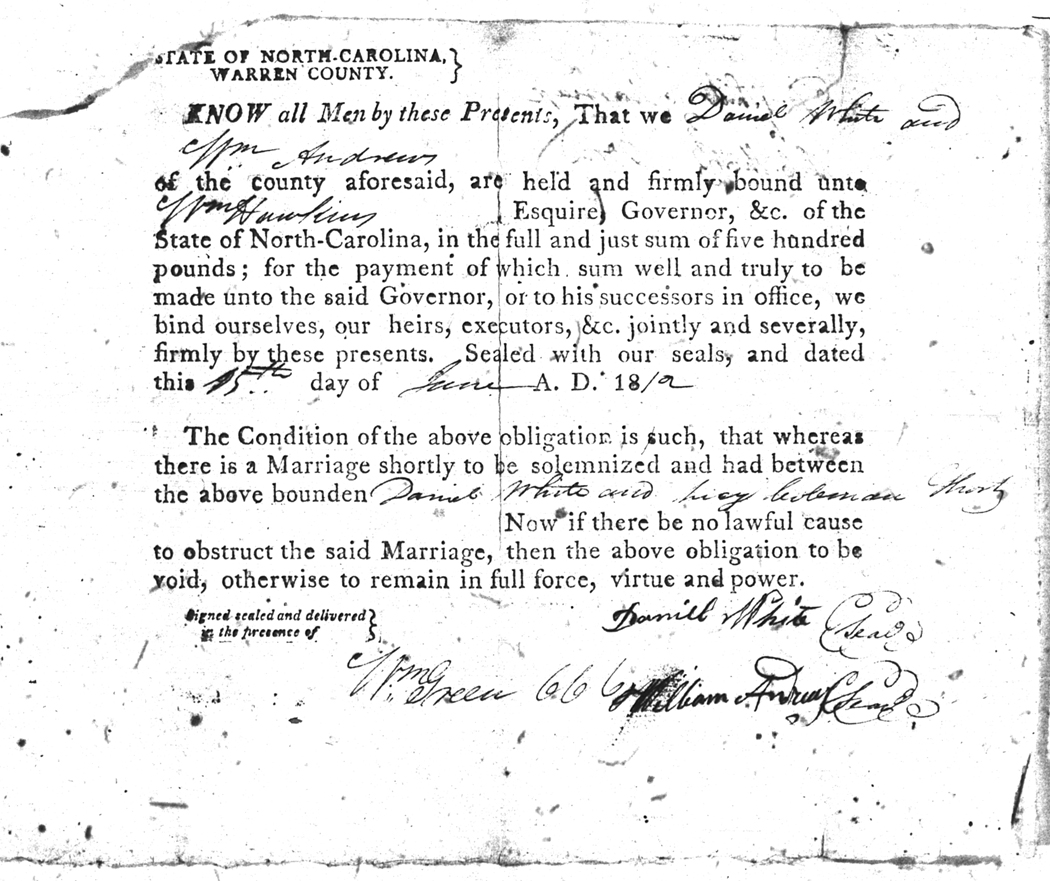 STATE OF NORTH-CAROLINA, }
WARREN COUNTY.
KNOW all Men by these Presents, That we Daniel White and
Wm Andrews
of the county aforesaid, are held and firmly bound unto
Wm Hawkins Esquire, Governor, &c. of the
State of North-Carolina, in the full and just sum of five hundred
pounds; for the payment of which sum well and truly to be
made unto the said Governor, or to his successors in office, we
bind ourselves, our heirs, executors, &c. jointly and severally,
firmly by these presents. Sealed with our seals, and dated
this 15th day of June A. D. 1812
The Condition of the above obligation is such, that whereas
there is a Marriage shortly to be solemnized and had between
the above bounden Daniel White and lucy Coleman Short
Now if there be no lawful cause
to obstruct the said Marriage, then the above obligation to be
void, otherwise to remain in full force, virtue and power.
Signed sealed and delivered }
in the presence of
Daniell White (Seal)
Wm. Green
William Andrews (Seal)